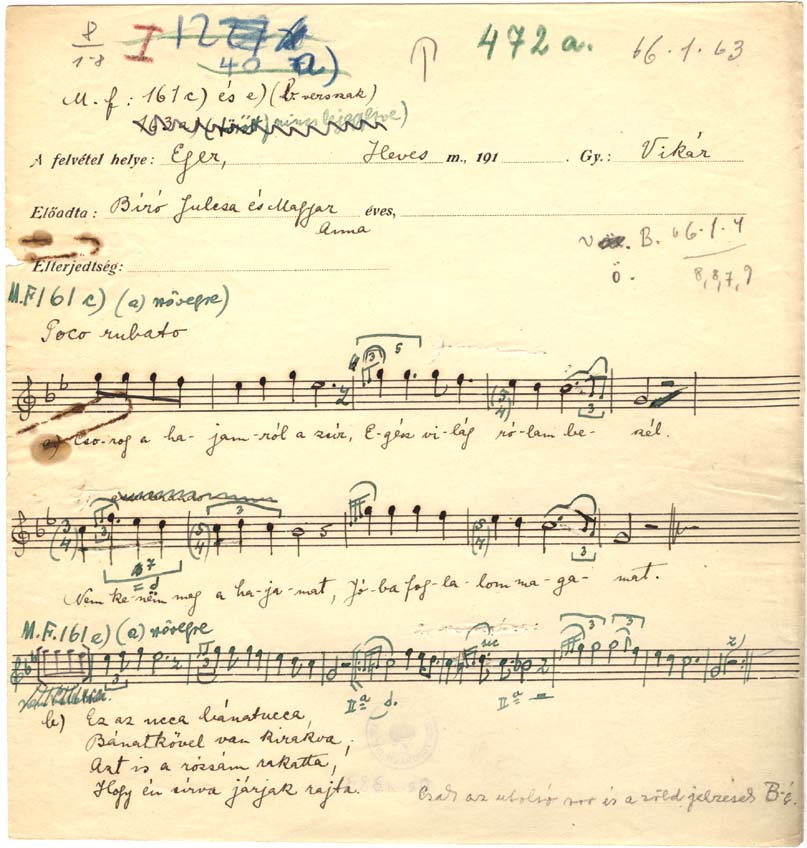 8
1-8
I 12
40 a)
472 a.
66.1.63
M. f: 161 c) és e) (b versszak)
A felvétel helye: Eger, Heves m., 191 . Gy.: Vikár
Előadta: Biró Julcsa és Magyar éves,
Anna
B. 66.1.4
Ő.
8,8,7,9
Elterjedtség:
M.F. 161 c) (a) növegre)
Poco rubato
a) Cso-rog a ha- jam-ról a zsir, E-gész vi-lág ró-lam be- szél.
Nem ke-nëm meg a ha-ja-mat, Jó-ba fog-la-lom ma-ga- mat.
M.F. 161 e) (a) növegre
sic
IIª
IIª
b) Ez az ucca bánatucca,
Bánatkövel van kirakva;
Azt is a rózsám rakatta,
Hogy én sirva járjak rajta.
Csak az utolsó sor is a zöld jelzések B-é.